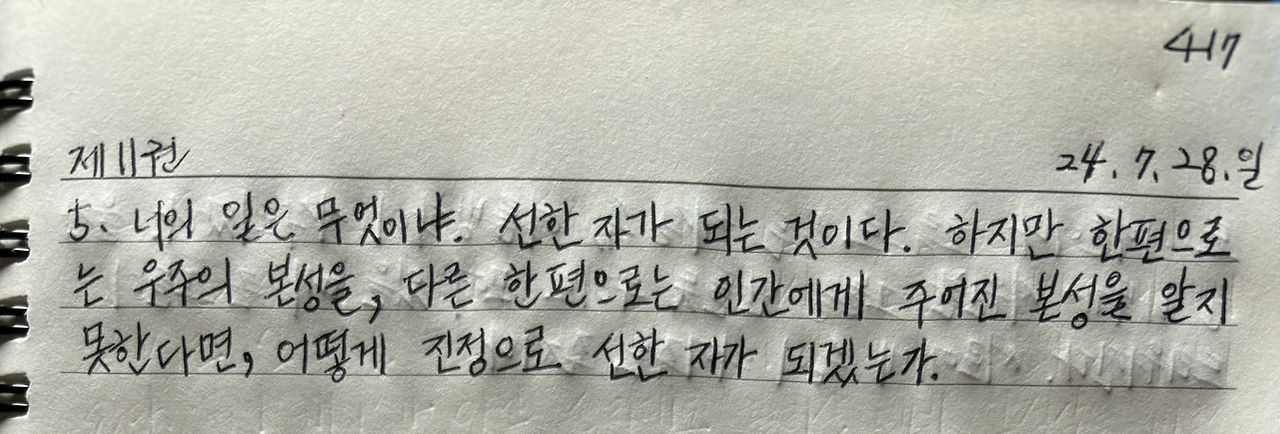 417
제11권 24.7.28.일
5. 너의 일은 무엇이냐. 선한 자가 되는 것이다. 하지만 한편으로
는 우주의 본성을, 다른 한편으로는 인간에게 주어진 본성을 알지
못한다면, 어떻게 진정으로 선한 자가 되겠는가.